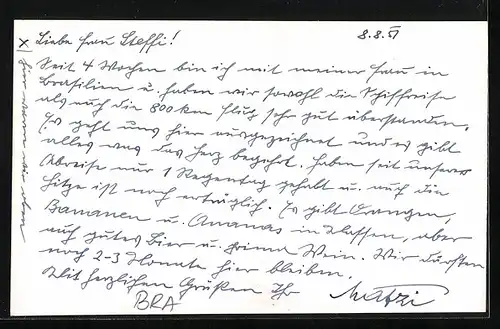 8.8.51
Liebe Frau Steffi!
Seit 4 Wochen bin ich mit meiner Frau in
Brasilien u. haben wir sowohl die Schiffreise
als auch die 800 km Flug sehr gut überstanden.
Es geht uns hier ausgezeichnet und es gibt
alles was das Herz begehrt. Haben seit unserer
Abreise nur 1 Regentag gehabt u. auch die
Hitze ist noch erträglich. Es gibt Orangen,
Bananen u. Ananas in Massen, aber
auch gutes Bier u. prima Wein. Wir dürften
noch 2-3 Monate hier bleiben.
Mit herzlichen Grüßen Ihr
BRA